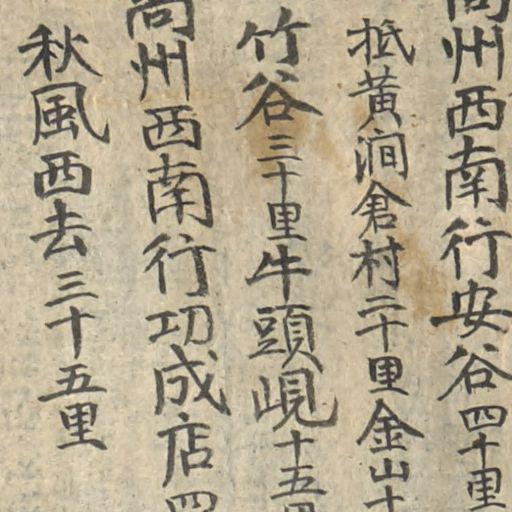 尙州西南行安谷四十里
抵黃澗倉村二十里金山十
竹谷三十里牛頭峴十五里
尙州西南行功成店四
秋風西去三十五里